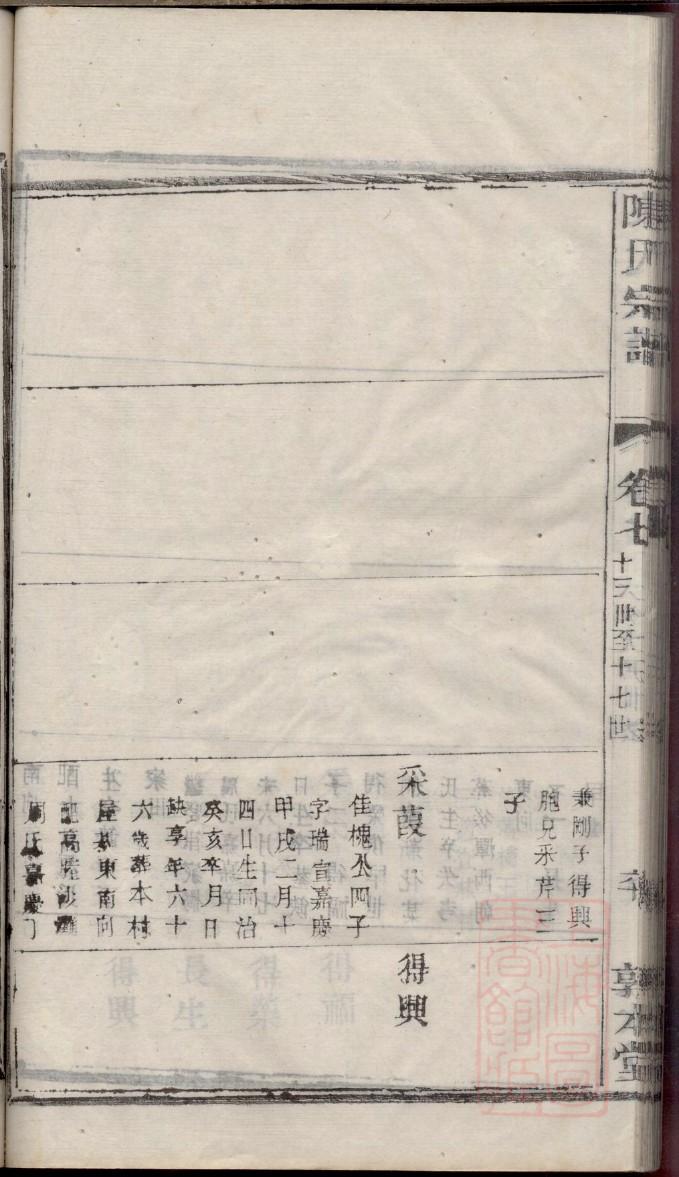 陳氏宗譜
卷七
十六世至十七世
敦本堂
兼剛子得興
胞兄采芹三
子
采葭
佳槐公四子
字瑞宣嘉慶
甲戌二月十
四日生同治
癸亥卒月日
缺享年六十
六歲葬本村
屋基東南向
配高陞沙灘
周氏嘉慶丁
得興